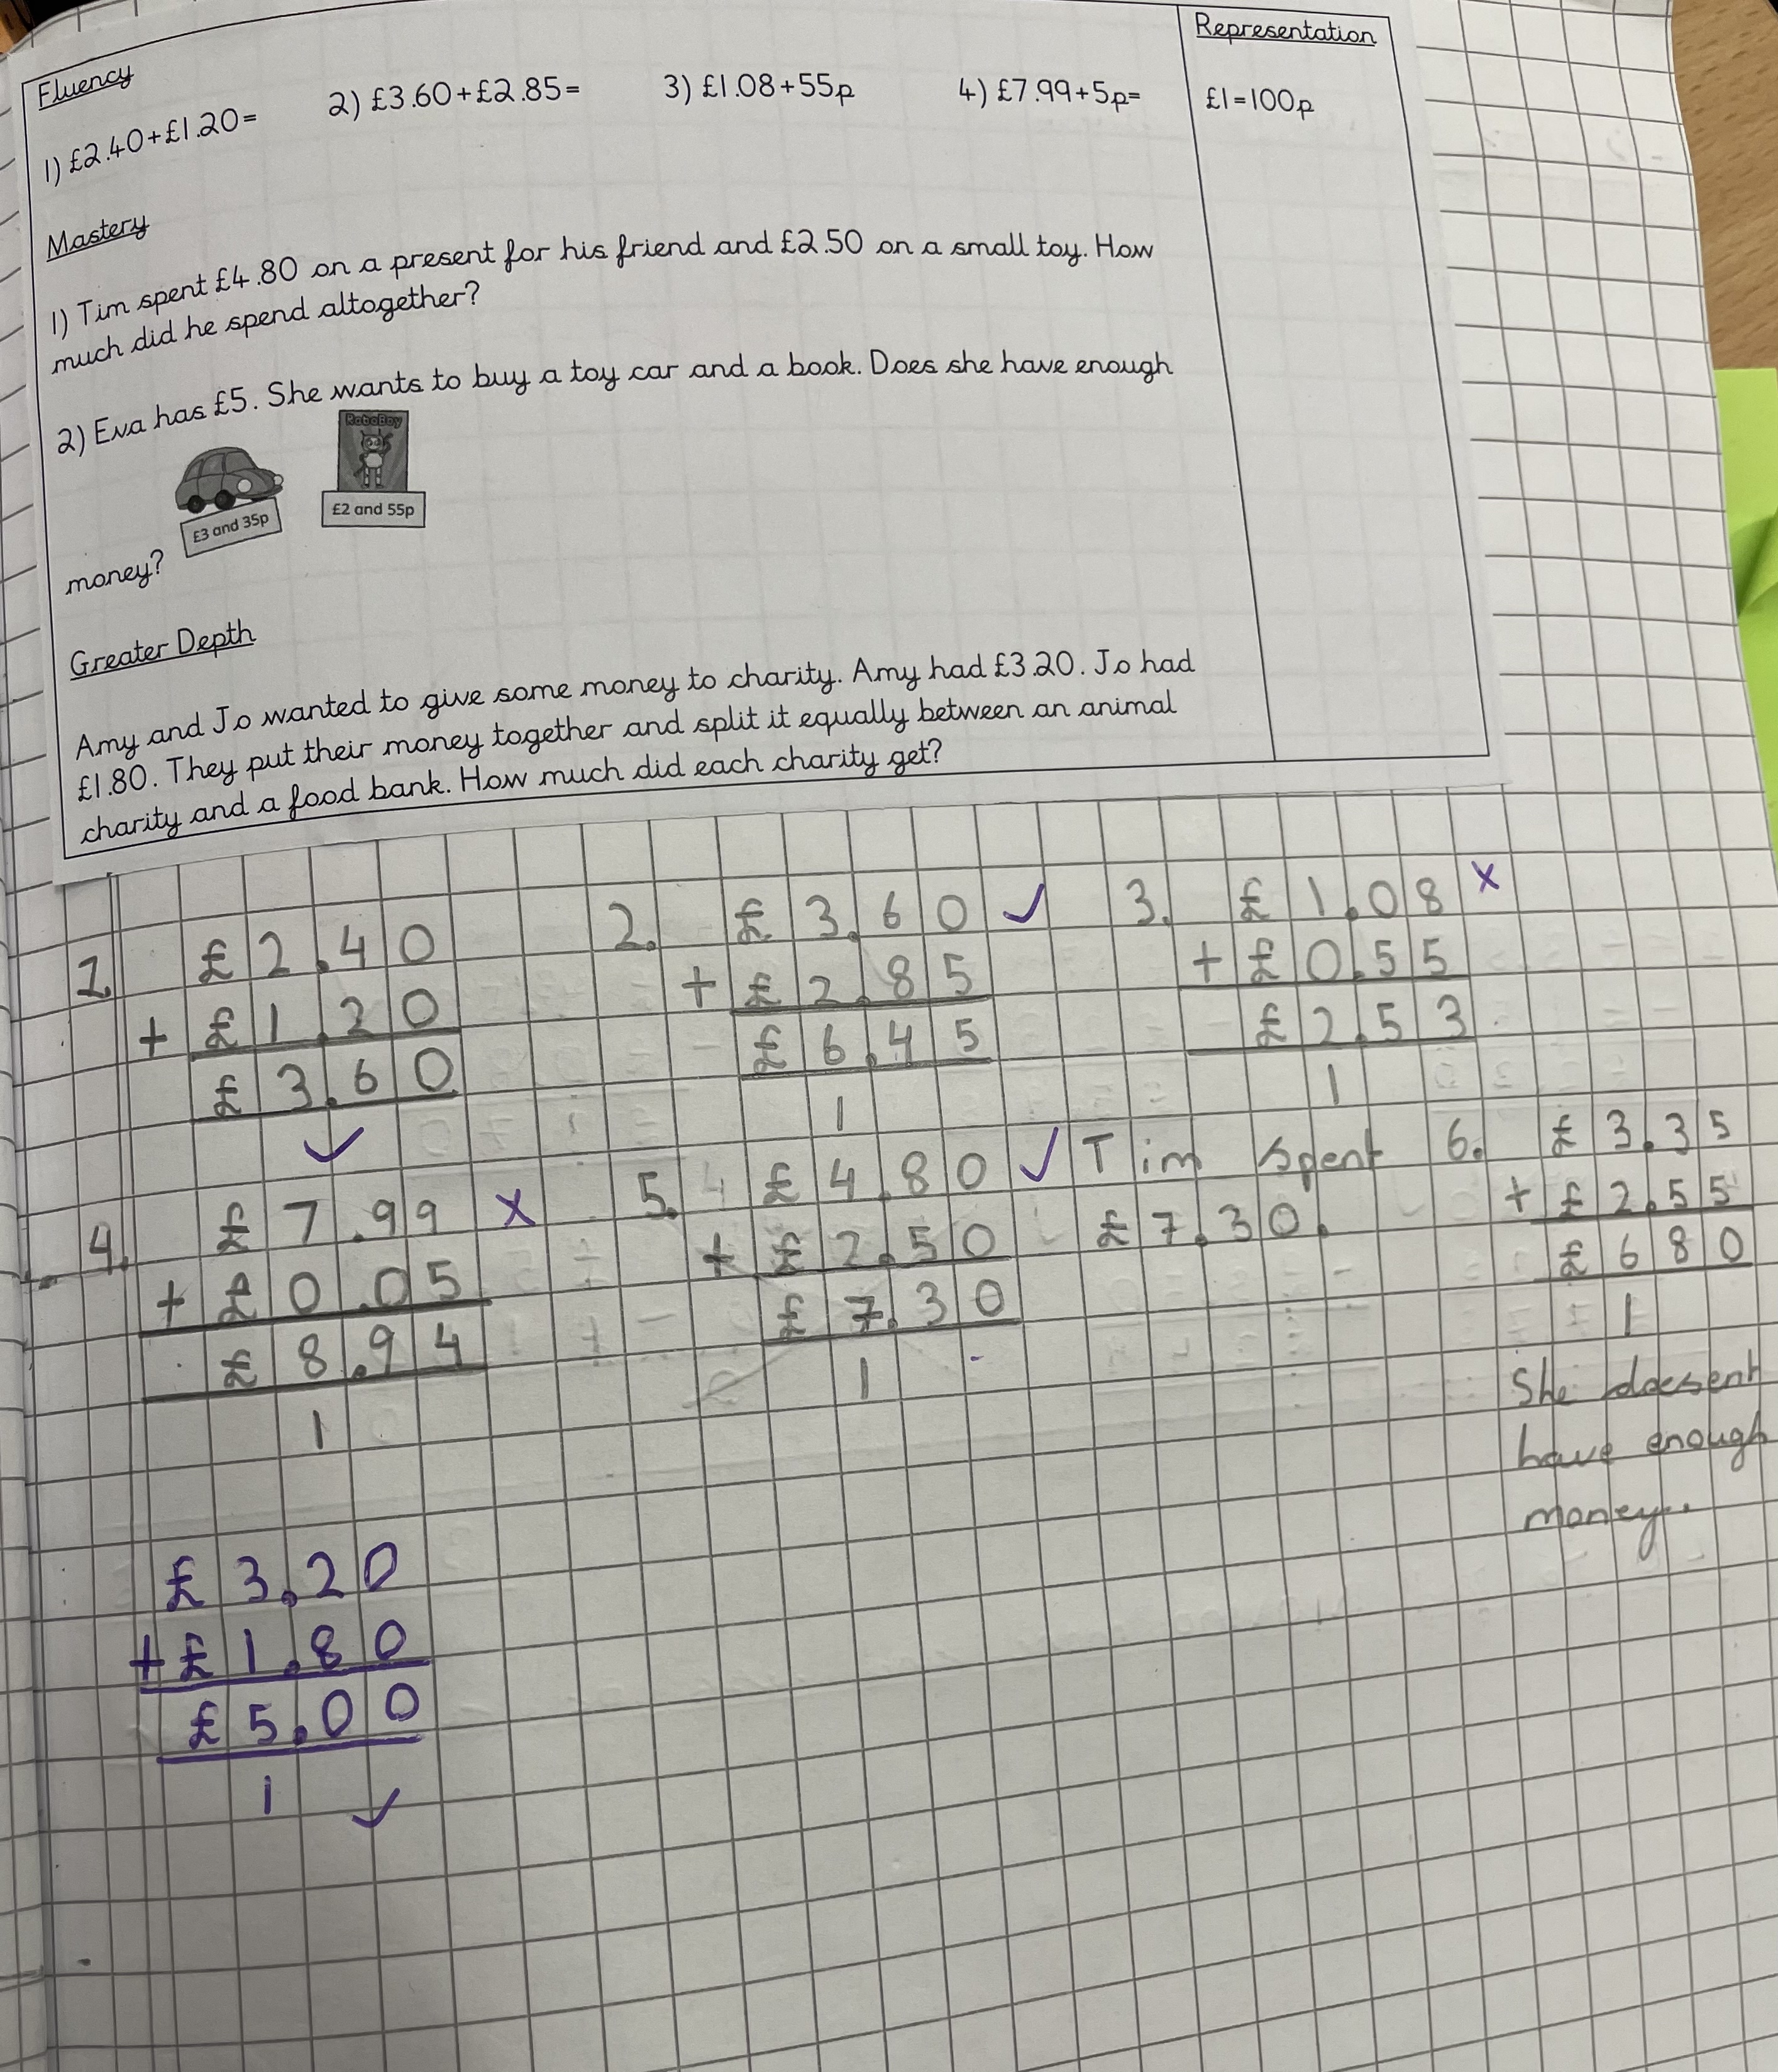 Fluency
1) £2.40+£1.20=
2) £3.60+£2.85=
3) £1.08+55p
4) £7.99+5p=
Representation
£1=100p
Mastery
1) Tim spent £4.80 on a present for his friend and £2.50 on a small toy. How
much did he spend altogether?
2) Eva has £5. She wants to buy a toy car and a book. Does she have enough
RoboBoy
£3 and 35p
£2 and 55p
money?
Greater Depth
Amy and Jo wanted to give some money to charity. Amy had £3.20. Jo had
£1.80. They put their money together and split it equally between an animal
charity and a food bank. How much did each charity get?
1.
£2.40
+ £1.20
£3.60
✓
2. £3.60 ✓
+ £2.85
£6.45
1
3. £1.08 x
+ £0.55
£2.53
1
4. £7.99 x
+ £0.05
£8.94
1
5. 4 £4.80 ✓
+ £2.50
£7.30
1
Tim spent
£7.30.
6. £3.35
+ £2.55
£680
1
She doesent
have enough
money..
£3.20
+£1.80
£5.00
1 ✓